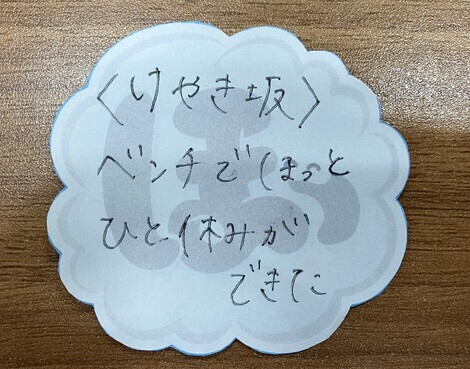 〈けやき坂〉
ベンチでほっと
ひと休みが
できた
ほっ